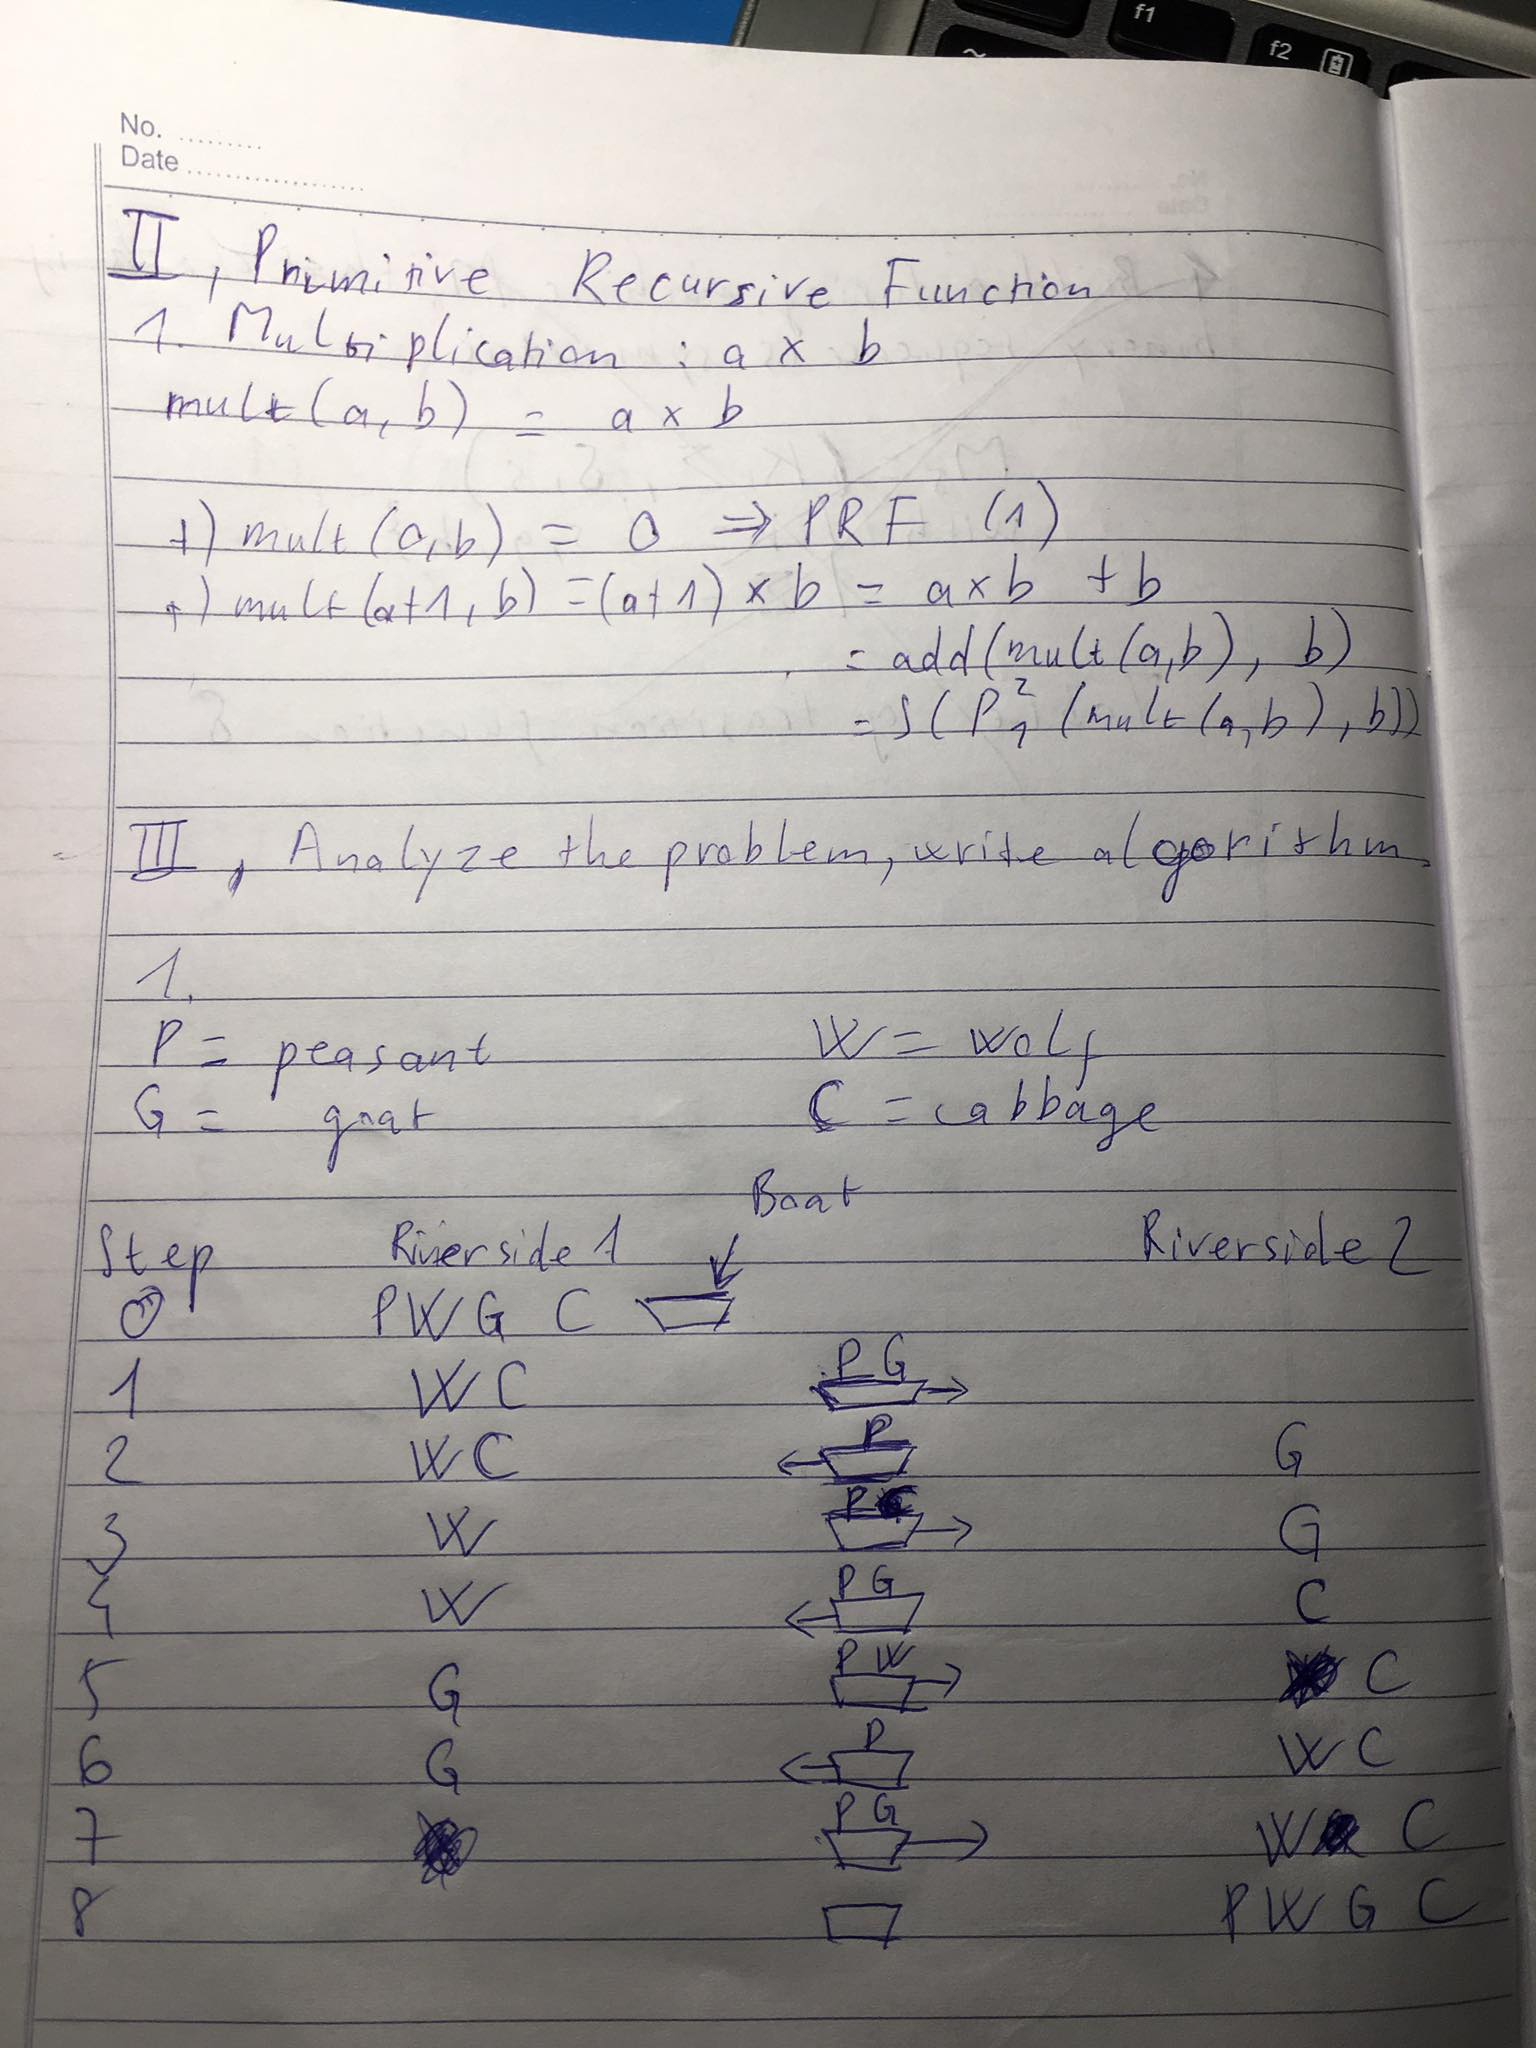 f1
f2
~
No. ..........
Date ..................
II, Primitive Recursive Function
1. Multiplication : a x b
mult(a, b) = a x b
+) mult(0,b) = 0 ⇒ PRF (1)
+) mult(a+1, b) = (a+1) x b = axb + b
= add(mult(a,b), b)
= S(P²₁(mult(a,b), b))
III, Analyze the problem, write algorithm.
1.
P = peasant W = wolf
G = goat C = cabbage
Boat
Step Riverside 1 Riverside 2
0 PWG C
1 WC PG →
2 WC ← P G
3 W PC → G
4 W ← PG C
5 G PW → C
6 G ← P WC
7 PG → W C
8 PWGC